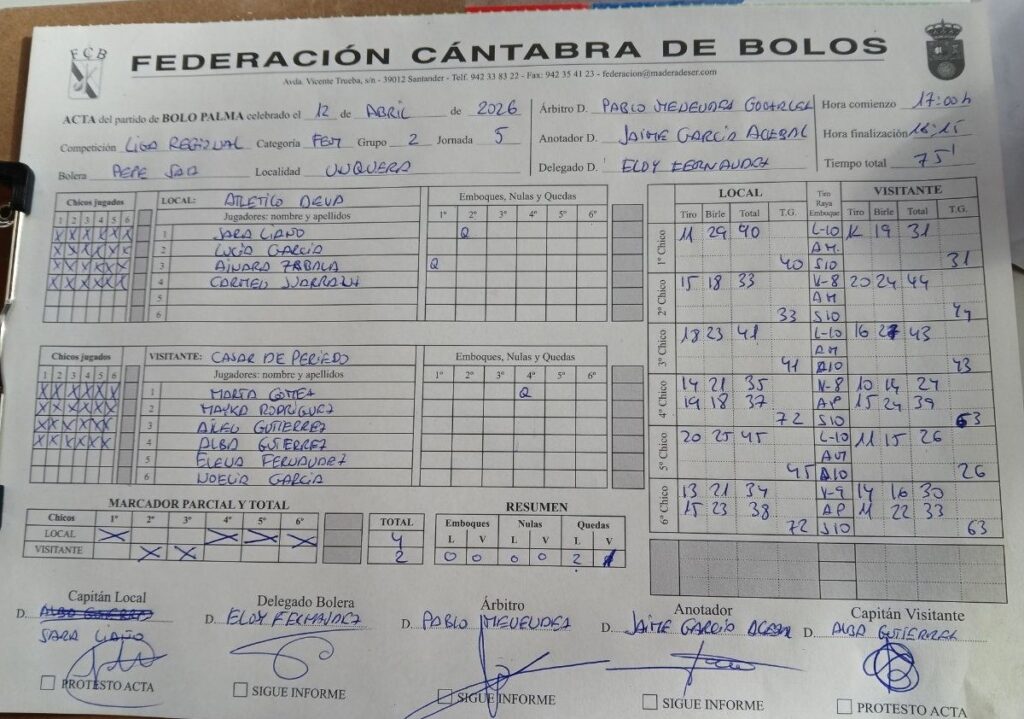 FCB
FEDERACIÓN CÁNTABRA DE BOLOS
Avda. Vicente Trueba, s/n - 39012 Santander - Telf. 942 33 83 22 - Fax: 942 35 41 23 - federacion@maderadeser.com
ACTA del partido de BOLO PALMA celebrado el 12 de ABRIL de 2026
Competición LIGA REGIONAL Categoría FEM Grupo 2 Jornada 5
Bolera PEPE SAD Localidad UNQUERA
Árbitro D. PABLO MENENDEZ
Anotador D. JAIME GARCÍA ACEBAL
Delegado D. ELOY FERNANDEZ
Hora comienzo 17:00 h
Hora finalización 18:15
Tiempo total 75'
Chicos jugados
1 2 3 4 5 6
X X X X X X
X X X X X X
X X X X X X
X X X X X X
LOCAL: ATLETICO DEVA
Jugadores: nombre y apellidos
1 SARA LIAÑO
2 LUCIA GARCIA
3 AINARA ZABALA
4 CARMEN
5
6
Emboques, Nulas y Quedas
1º 2º 3º 4º 5º 6º
Q
Q
Chicos jugados
1 2 3 4 5 6
X X X X X X
X X X X X X
X X X X X X
X X X X X X
VISITANTE: CASAR DE PERIEDO
Jugadores: nombre y apellidos
1 MARTA GOMEZ
2 MAYKA RODRIGUEZ
3 GUTIERREZ
4 ALBA GUTIERREZ
5 ELENA FERNANDEZ
6 NOELIA GARCIA
Emboques, Nulas y Quedas
1º 2º 3º 4º 5º 6º
Q
LOCAL Tiro Raya Emboque VISITANTE
Tiro Birle Total T.G. Tiro Birle Total T.G.
1º Chico
11 29 40 L-10 12 19 31
AM
40 S10 31
2º Chico
15 18 33 V-8 20 24 44
AM
33 S10 44
3º Chico
18 23 41 L-10 16 27 43
AM
41 A10 43
4º Chico
14 21 35 V-8 10 14 24
19 18 37 AP 15 24 39
72 S10 63
5º Chico
20 25 45 L-10 11 15 26
AM
45 A10 26
6º Chico
13 21 34 V-9 14 16 30
15 23 38 AP 11 22 33
72 S10 63
MARCADOR PARCIAL Y TOTAL
Chicos 1º 2º 3º 4º 5º 6º TOTAL
LOCAL X X X X 4
VISITANTE X X 2
RESUMEN
Emboques Nulas Quedas
L V L V L V
0 0 0 0 2 1
Capitán Local
D. ALBA GUTIERREZ
SARA LIAÑO
PROTESTO ACTA
Delegado Bolera
D. ELOY FERNANDEZ
SIGUE INFORME
Árbitro
D. PABLO MENENDEZ
SIGUE INFORME
Anotador
D. JAIME GARCÍA ACEBAL
SIGUE INFORME
Capitán Visitante
D. ALBA GUTIERREZ
PROTESTO ACTA